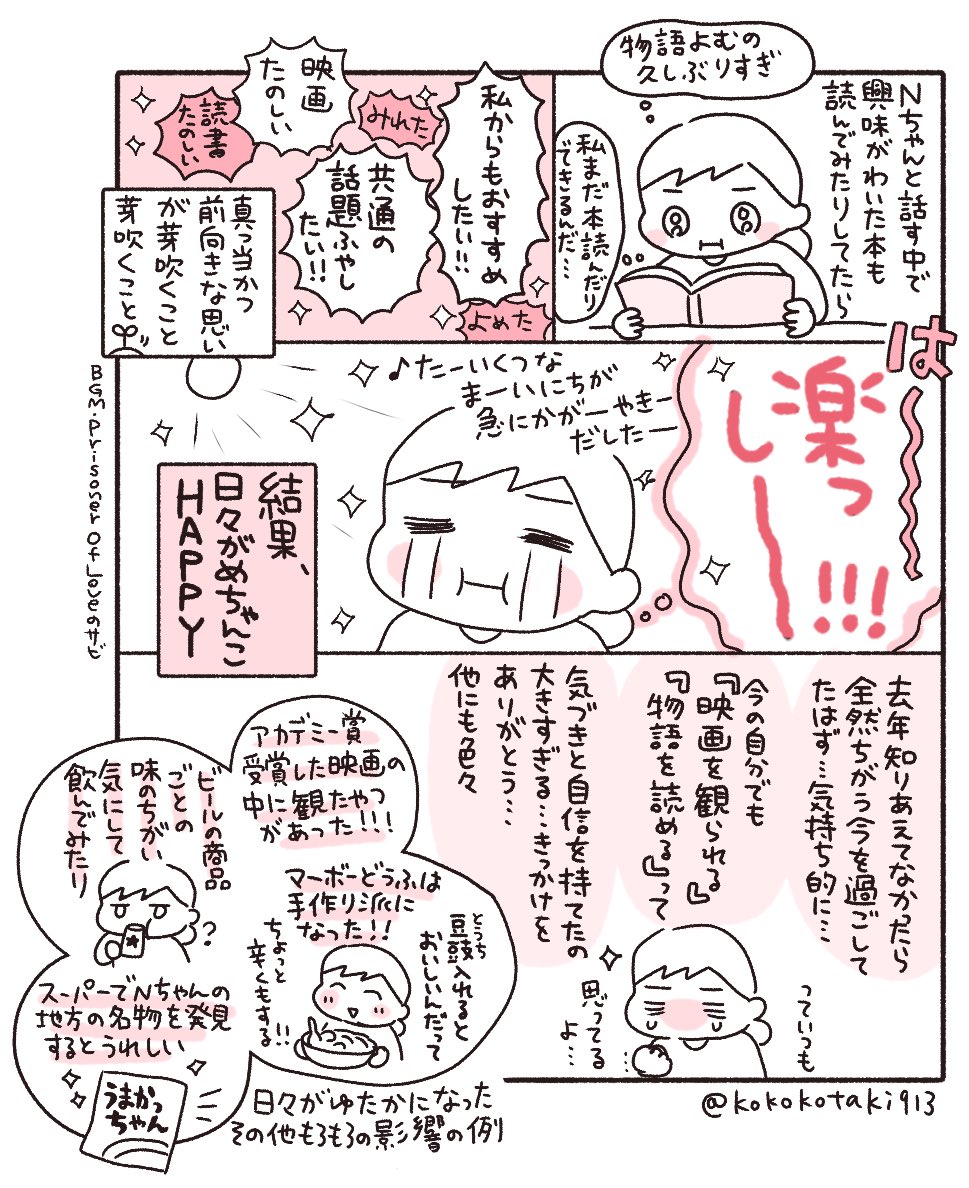 Nちゃんと話す中で
興味がわいた本も
読んでみたりしてたら
物語よむの
久しぶりすぎ
私まだ本読んだり
できるんだ…
私からもおすすめ
したい!!
みれた
映画
たのしい
読書
たのしい
共通の
話題ふやし
たい!!
よめた
真っ当かつ
前向きな思い
が芽吹くこと
芽吹くこと
は
楽っ
しー
!!!
♪たーいくつな
まーいにちが
急にかがーやきー
だしたー
結果、
日々がめちゃんこ
HAPPY
BGM.Prisoner Of Loveのサビ
去年知りあえてなかったら
全然ちがう今を過ごして
たはず…気持ち的に…
今の自分でも
『映画を観られる』
『物語を読める』って
気づきと自信を持てたの
大きすぎる…きっかけを
ありがとう…
他にも色々
っていつも
思ってる
よ…
アカデミー賞
受賞した映画の
中に観たやつ
があった!!!
ビールの商品
ごとの
味のちがい
気にして
飲んでみたり
?
マーボーどうふは
手作り派に
なった!!
とうち
豆鼓入れると
おいしいんだって
ちょっと
辛くもする!!
スーパーでNちゃんの
地方の名物を発見
するとうれしい
うまかっ
ちゃん
日々がゆたかになった
その他もろもろの影響の例
@kokokotaki913